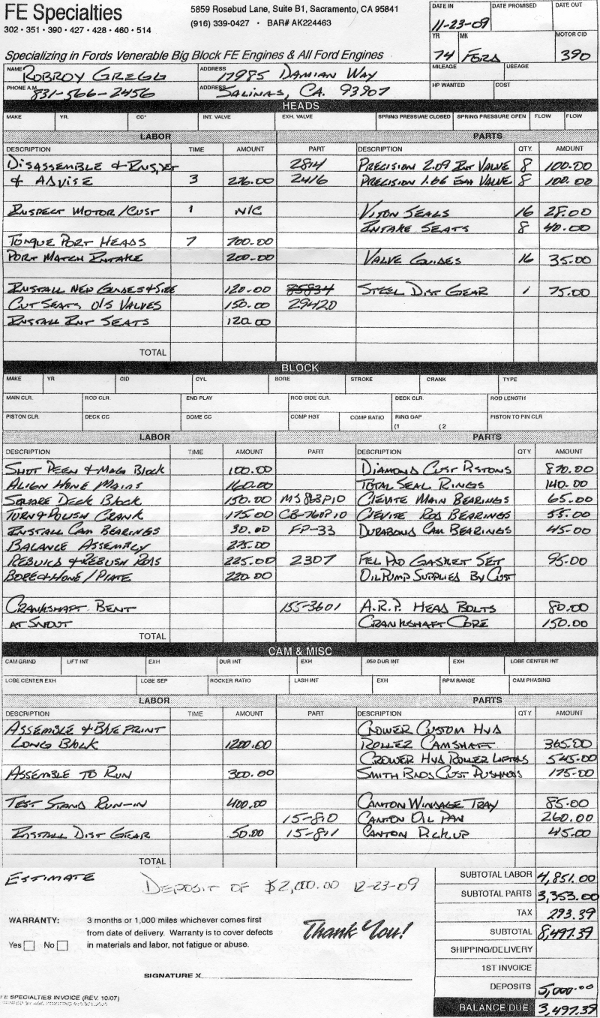 FE Specialties
302 • 351 • 390 • 427 • 428 • 460 • 514
5859 Rosebud Lane, Suite B1, Sacramento, CA 95841
(916) 339-0427 • BAR# AK224463
DATE IN DATE PROMISED DATE OUT
11-23-09
Specializing in Fords Venerable Big Block FE Engines & All Ford Engines
YR MK MOTOR CID
74 Ford 390
NAME Robroy Gregg ADDRESS 17985 Damian Way
MILEAGE USEAGE
PHONE A.M. 831-566-2456 ADDRESS Salinas, CA. 93907
HP WANTED COST
HEADS
MAKE YR. CC" INT. VALVE EXH. VALVE SPRING PRESSURE CLOSED SPRING PRESSURE OPEN FLOW FLOW
LABOR PARTS
DESCRIPTION TIME AMOUNT PART DESCRIPTION QTY AMOUNT
Disassemble & Inspect 2814 Precision 2.09 Int Valve 8 100.00
& Advise 3 226.00 2416 Precision 1.66 Exh Valve 8 100.00
Inspect Motor/Cust 1 N/C Viton Seals 16 28.00
Intake Seats 8 40.00
Torque Port Heads 7 700.00
Port Match Intake 200.00 Valve Guides 16 35.00
Install New Guides & Size 120.00 85834 Steel Dist Gear 1 75.00
Cut Seats O/S Valves 150.00 29420
Install Int Seats 120.00
TOTAL
BLOCK
MAKE YR CID CYL BORE STROKE CRANK TYPE
MAIN CLR. ROD CLR. END PLAY ROD SIDE CLR. DECK CLR. ROD LENGTH
PISTON CLR. DECK CC DOME CC COMP HGT COMP RATIO RING GAP (1 (2 PISTON TO PIN CLR
LABOR PARTS
DESCRIPTION TIME AMOUNT PART DESCRIPTION QTY AMOUNT
Shot Peen & Mag Block 100.00 Diamond Cust Pistons 870.00
Align Hone Mains 160.00 Total Seal Rings 140.00
Square Deck Block 150.00 MS863P10 Clevite Main Bearings 65.00
Turn & Polish Crank 175.00 CB-760P10 Clevite Rod Bearings 55.00
Install Cam Bearings 30.00 FP-33 Durabond Cam Bearings 45.00
Balance Assembly 225.00
Rebuild & Rebush Rods 225.00 2307 Fel Pro Gasket Set 95.00
Bore & Hone/Plate 220.00 Oil Pump Supplied By Cust
Crankshaft Bent 155-3601 A.R.P. Head Bolts 80.00
at Snout Crankshaft Core 150.00
TOTAL
CAM & MISC
CAM GRIND LIFT INT EXH DUR INT EXH .050 DUR INT EXH LOBE CENTER INT
LOBE CENTER EXH LOBE SEP ROCKER RATIO LASH INT EXH RPM RANGE CAM PHASING
LABOR PARTS
DESCRIPTION TIME AMOUNT PART DESCRIPTION QTY AMOUNT
Assemble & Blueprint Crower Custom Hyd
Long Block 1200.00 Roller Camshaft 365.00
Crower Hyd Roller Lifters 545.00
Assemble to Run 300.00 Smith Bros Cust Pushrods 175.00
Test Stand Run-in 400.00 Canton Windage Tray 85.00
15-810 Canton Oil Pan 260.00
Install Dist Gear 50.00 15-811 Canton Pickup 45.00
TOTAL
Estimate Deposit of $2,000.00 12-23-09
SUBTOTAL LABOR 4,851.00
SUBTOTAL PARTS 3,353.00
TAX 293.39
SUBTOTAL 8,497.39
SHIPPING/DELIVERY
1ST INVOICE
DEPOSITS 5,000.00
BALANCE DUE 3,497.39
WARRANTY: 3 months or 1,000 miles whichever comes first
from date of delivery. Warranty is to cover defects
Yes No in materials and labor, not fatigue or abuse.
Thank You!
SIGNATURE X
FE SPECIALTIES INVOICE (REV. 10/07)